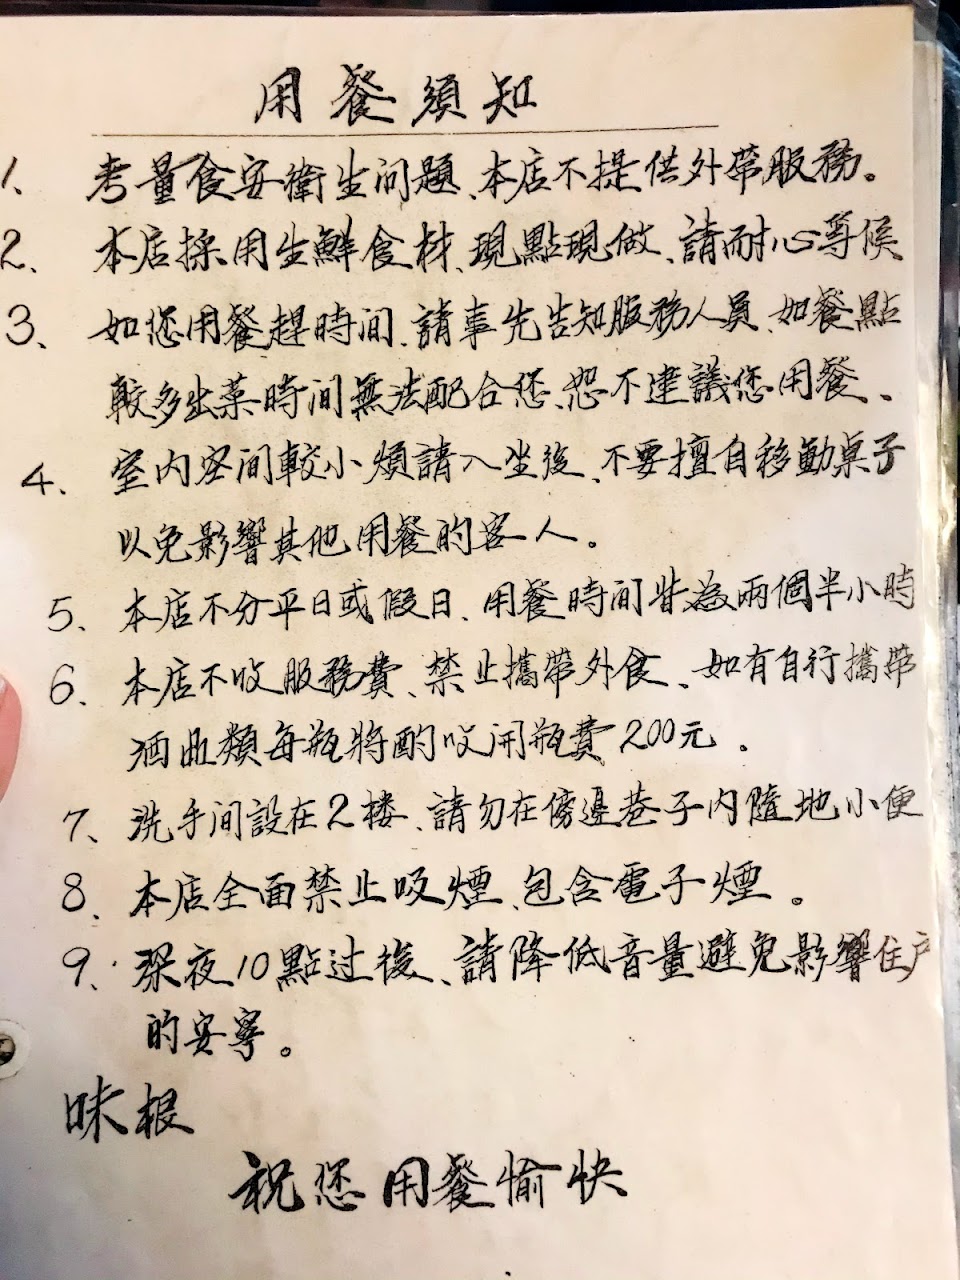 用餐須知
1、考量食安衛生问題、本店不提供外帶服務。
2、本店採用生鮮食材、現點現做、請耐心等候
3、如您用餐趕時间、請事先告知服務人員、如餐點
較多出菜時间無法配合您、恕不建議您用餐、
4、室内空间較小煩請入坐後、不要擅自移動桌子
以免影響其他用餐的客人。
5、本店不分平日或假日、用餐時间皆為兩個半小時
6、本店不收服務費、禁止攜帶外食、如有自行攜帶
酒类類每瓶將酌收開瓶費200元。
7、洗手间設在2楼、請勿在傍邊巷子内隨地小便
8、本店全面禁止吸煙、包含電子煙。
9、深夜10點过後、請降低音量避免影響住戶
的安寧。
味根
祝您用餐愉快